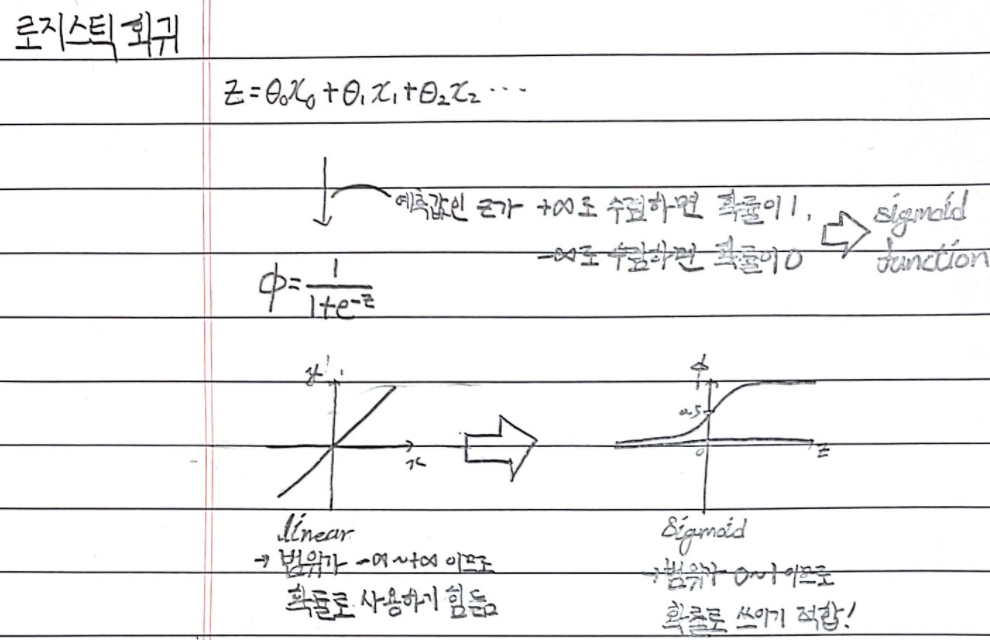 로지스틱 회귀
z = θ₀x₀ + θ₁x₁ + θ₂x₂ ⋯
예측값인 z가 +∞로 수렴하면 확률이 1,
-∞로 수렴하면 확률이 0
⇨ sigmoid
function
ϕ = 1/(1+e^-z)
y
x
ϕ
1
0.5
0
z
linear
→ 범위가 -∞~+∞ 이므로
확률로 사용하기 힘듦
Sigmoid
→ 범위가 0~1 이므로
확률로 쓰이기 적합!